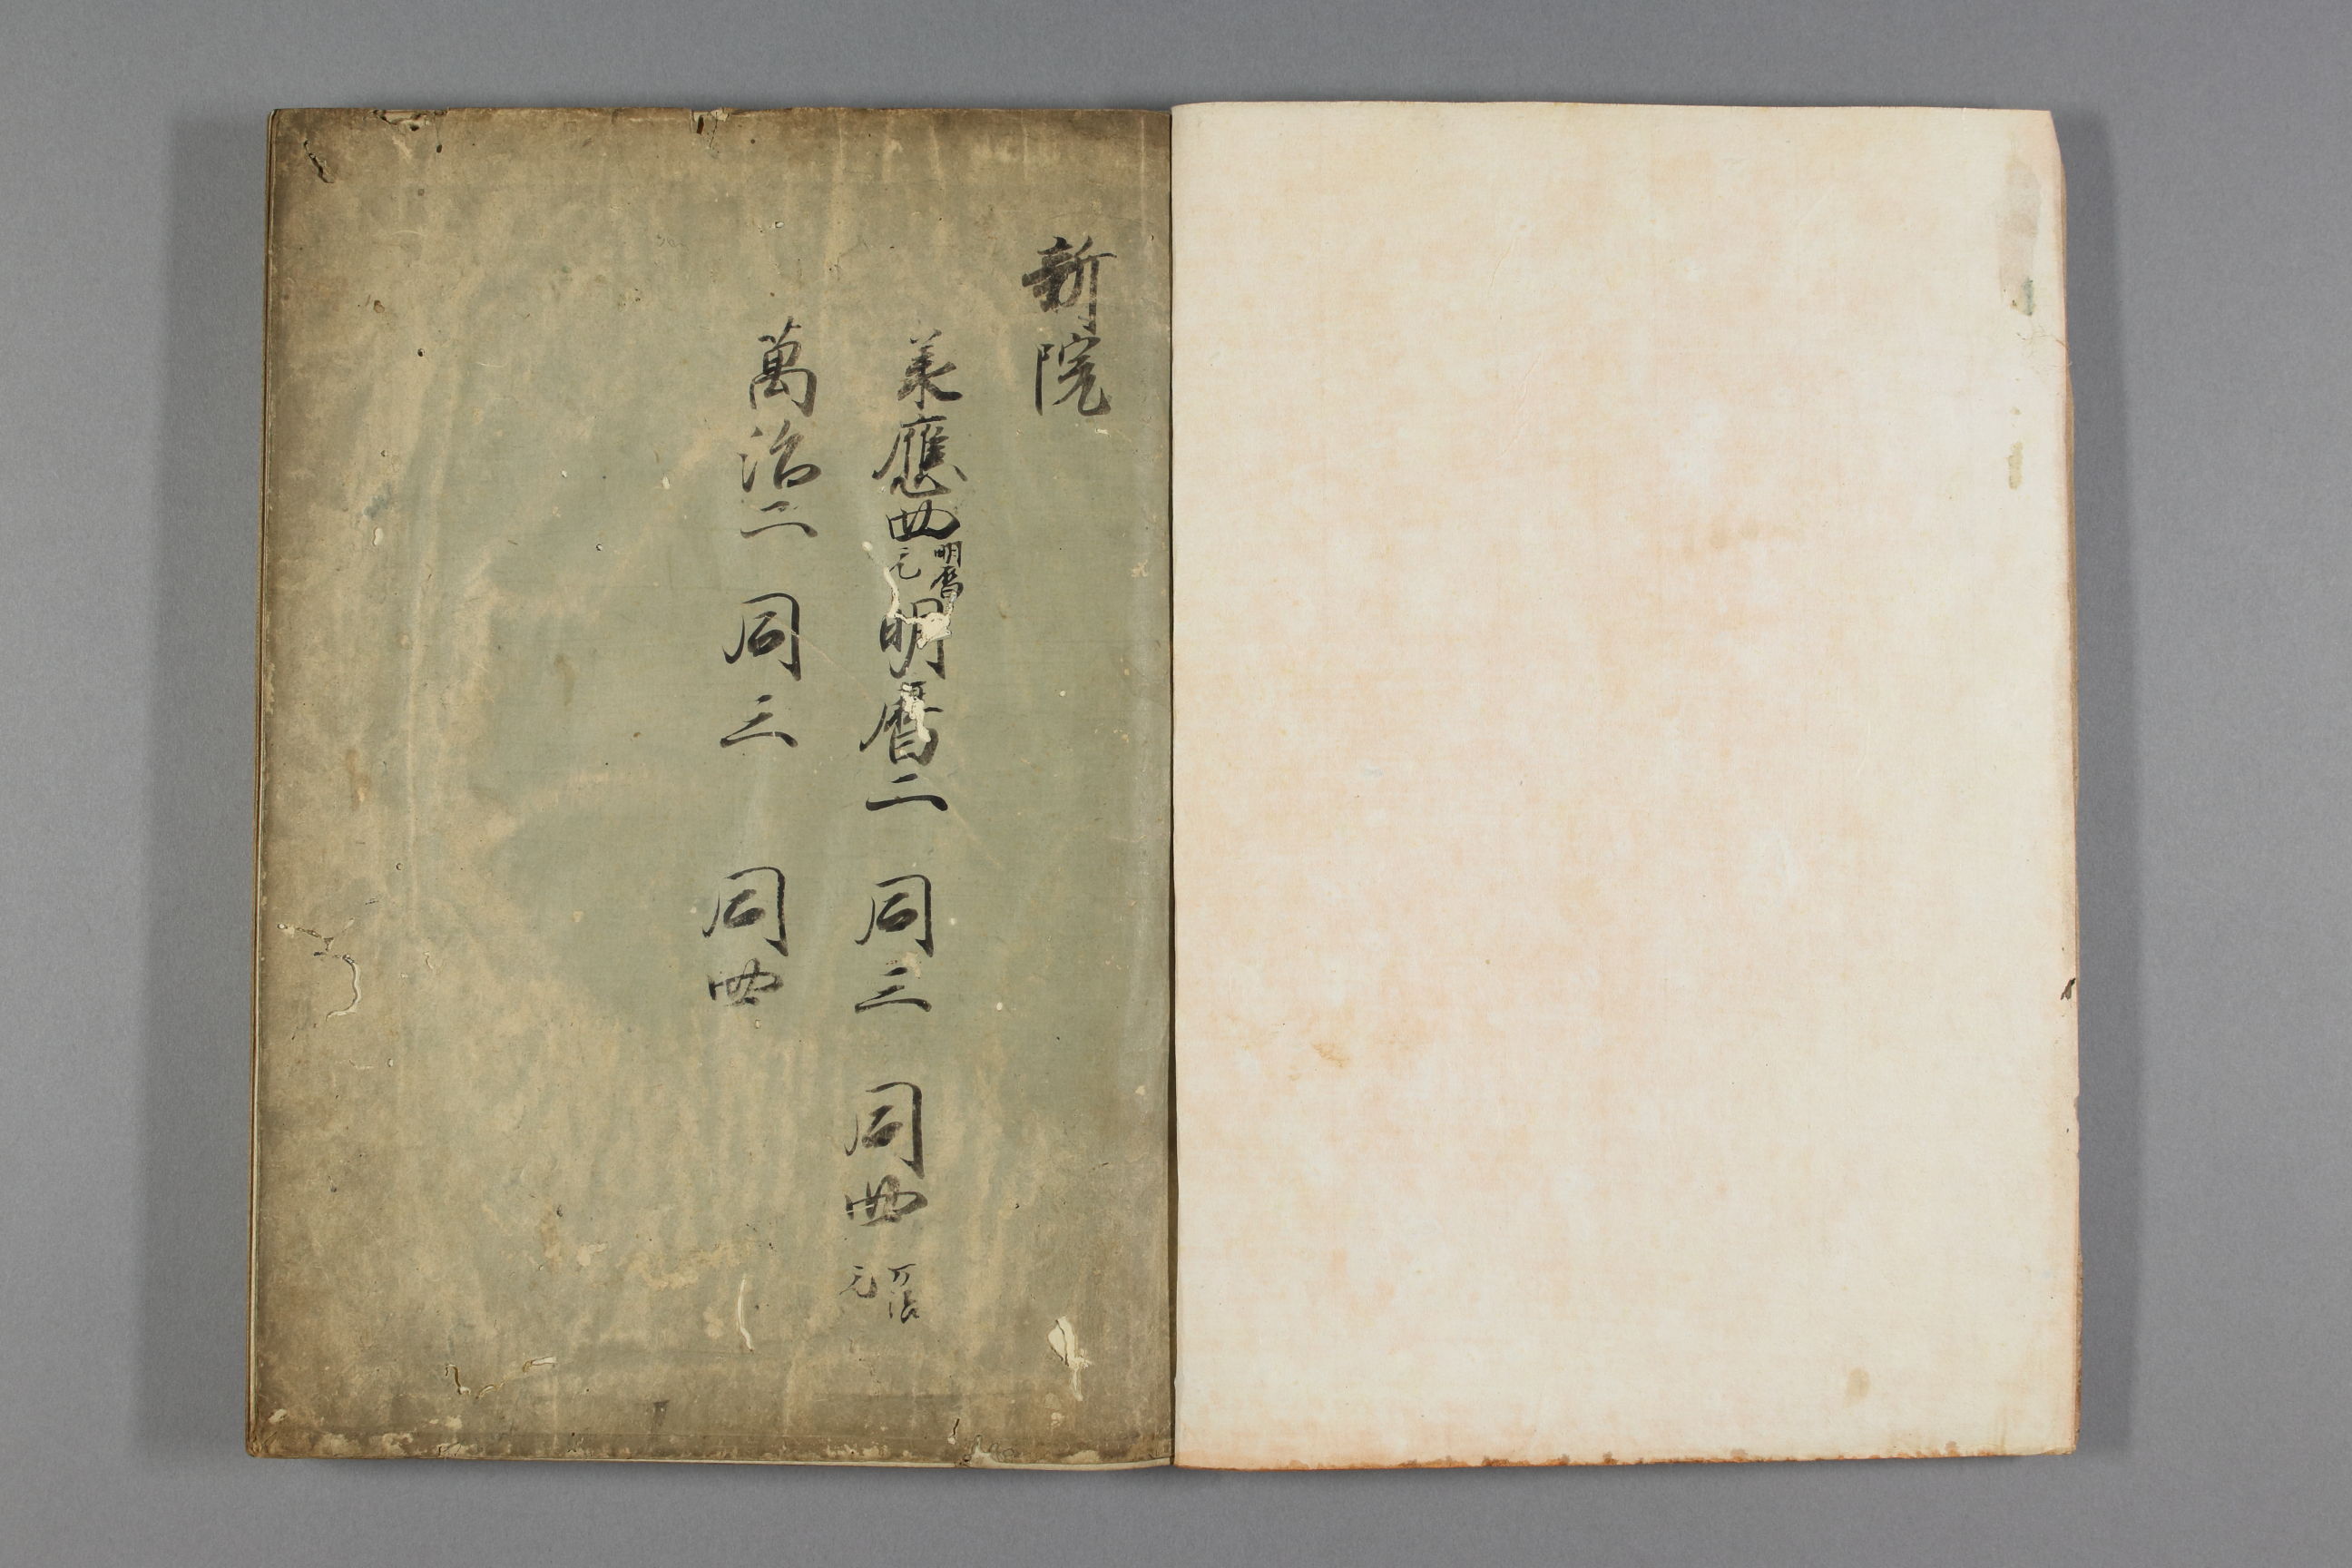 新院
承應四明暦元明暦二　同三　同四万治元
萬治二　同三　同四